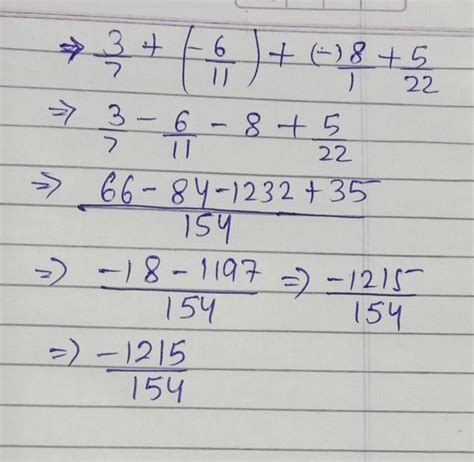 ⇒ 3/7 + (-6/11) + (-)8/1 + 5/22
⇒ 3/7 - 6/11 - 8 + 5/22
⇒ 66-84-1232+35/154
⇒ -18-1197/154 ⇒ -1215/154
⇒ -1215/154